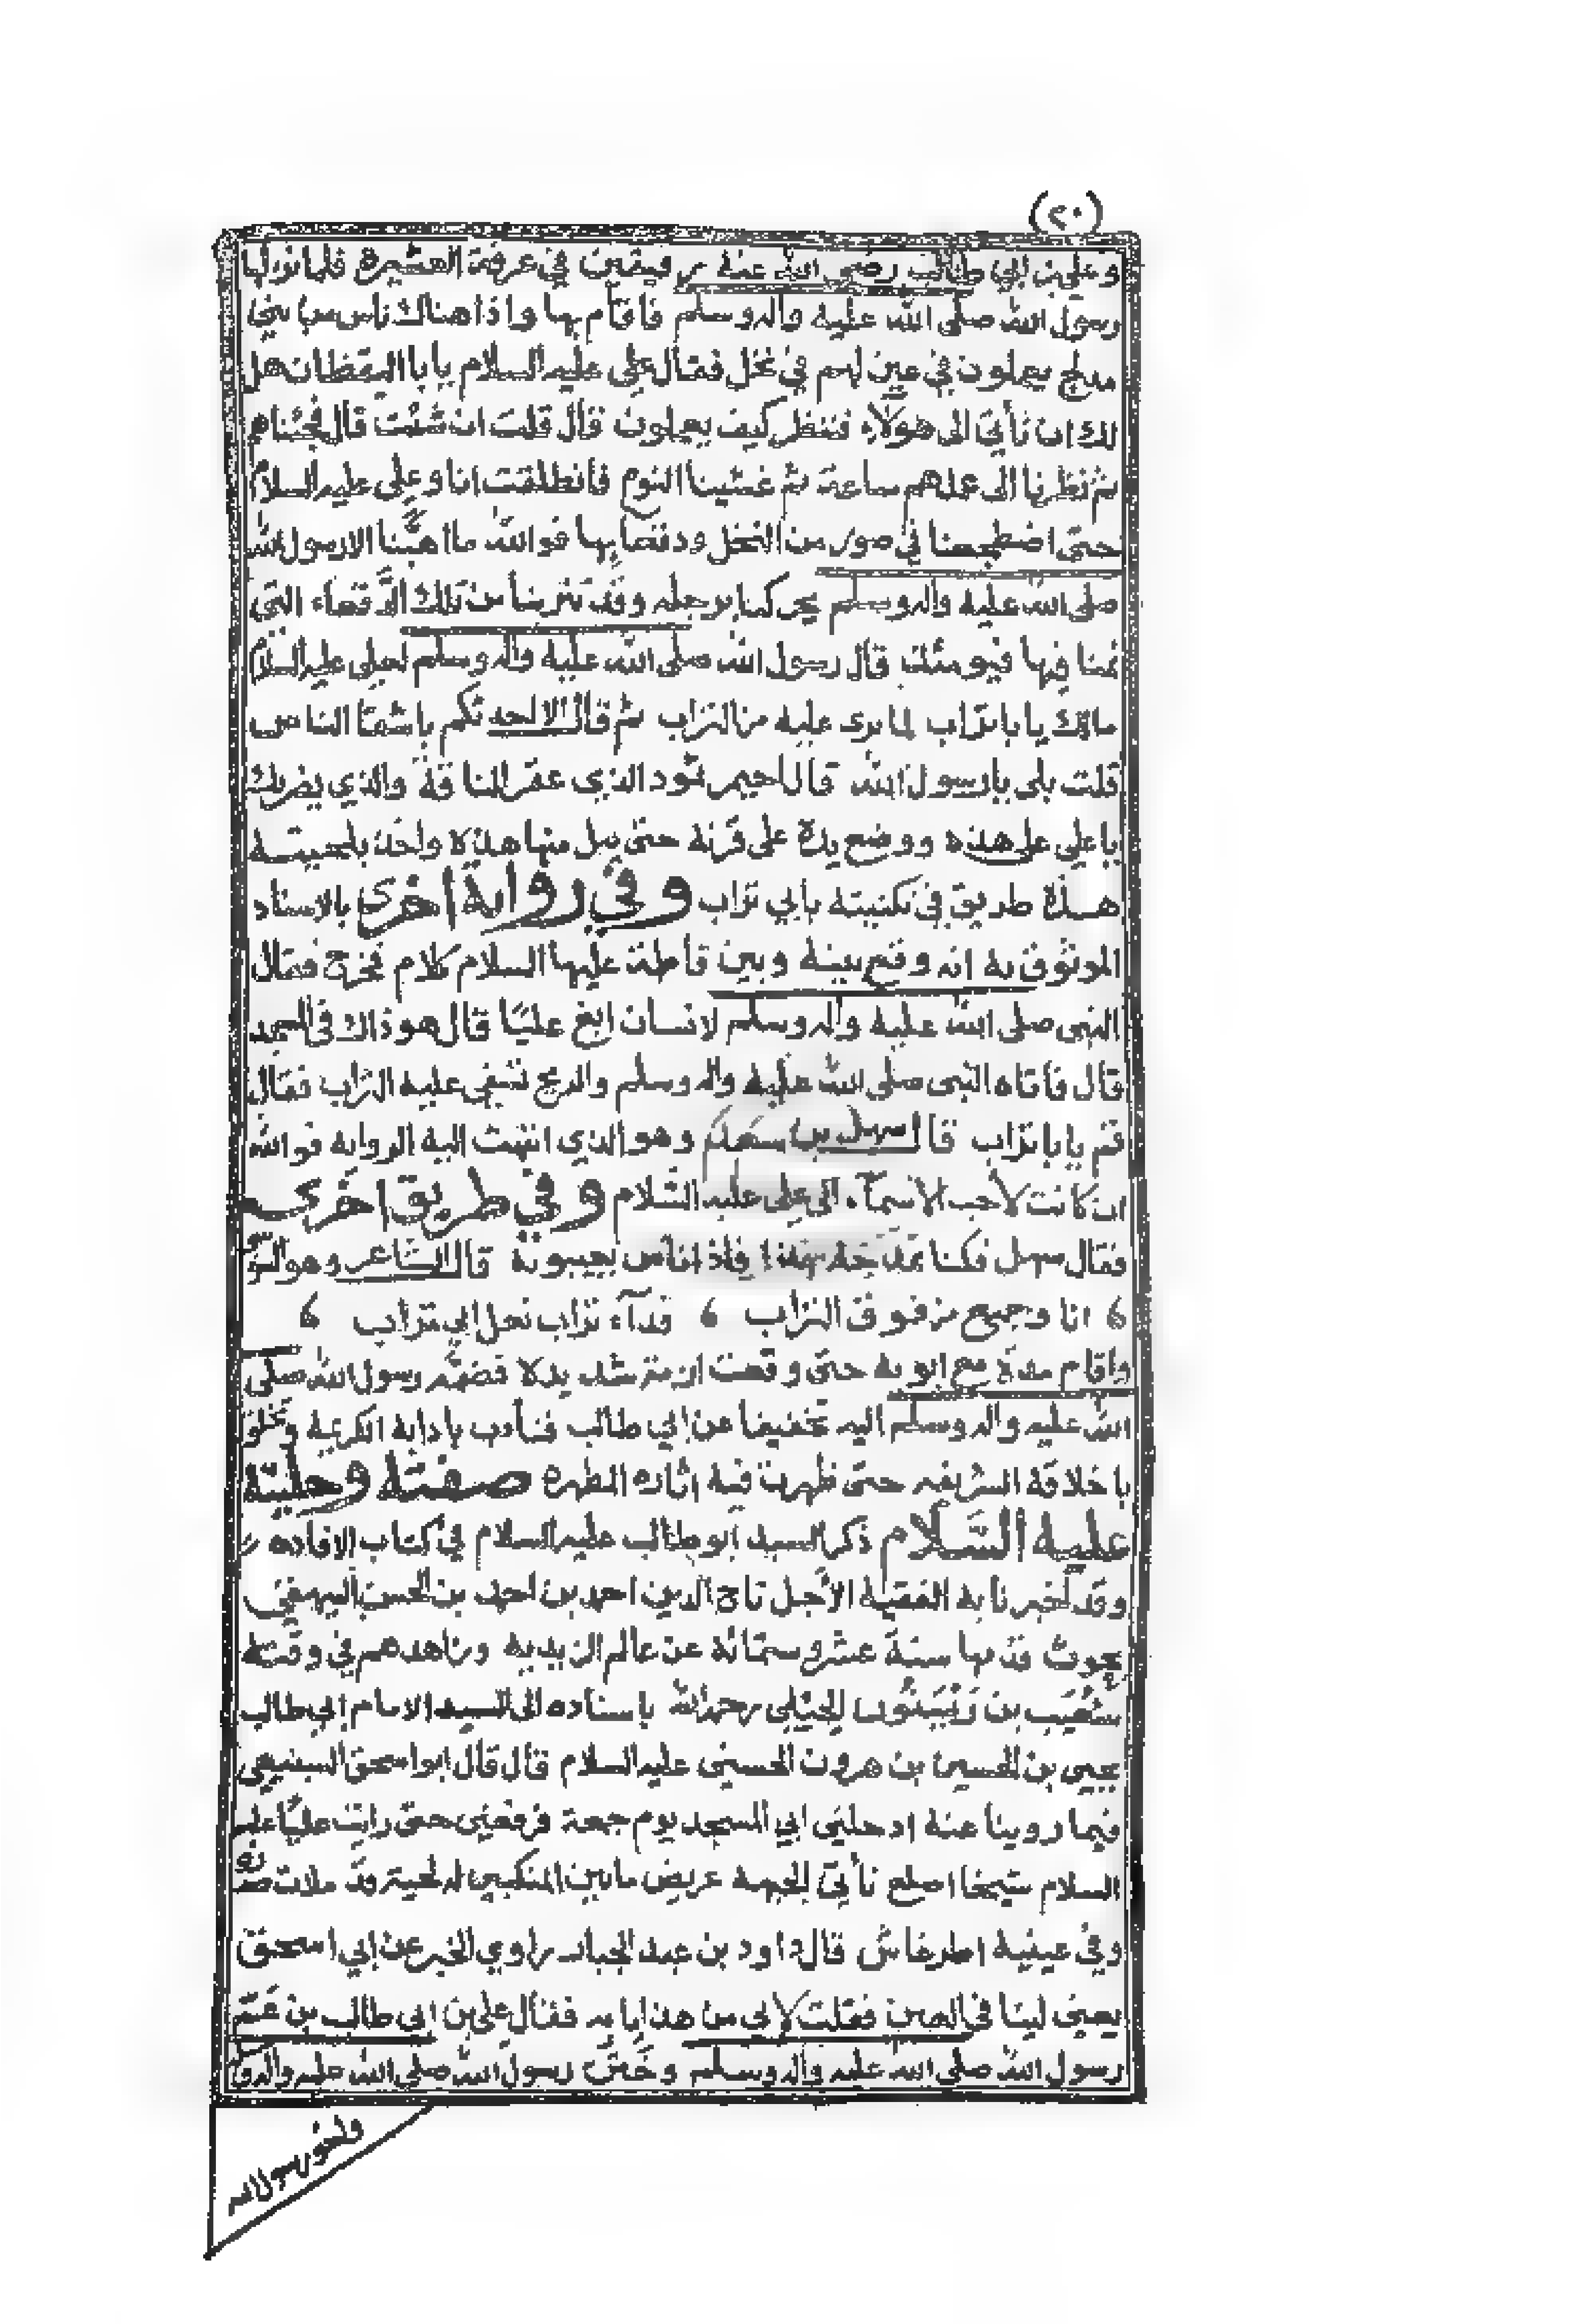 (٢٠)
وعلي بن ابي طالب رضي الله عنه رفيقين في غزوة العشيرة فلما نزلها
رسول الله صلى الله عليه واله وسلم فاقام بها واذا هناك ناس من بني
مدلج يعملون في عين لهم في نخل فقال علي عليه السلام يا با اليقظان هل
لك ان نأتي الى هولاء فننظر كيف يعملون قال قلت ان شئت قال فجئناهم
ثم نظرنا الى عملهم ساعة ثم غشينا النوم فانطلقت انا وعلي عليه السلام
حتى اضطجعنا في صور من النخل ودقعا بها فوالله ما اهبنا الا رسول الله
صلى الله عليه واله وسلم يحركنا برجله وقد تتربنا من تلك الدقعاء التي
نمنا فيها فيومئذ قال رسول الله صلى الله عليه واله وسلم لعلي عليه السلام
مالك يا با تراب لما يرى عليه من التراب ثم قال الا احدثكم باشقا الناس
قلت بلى يا رسول الله قال احيمر ثمود الذي عقر الناقة والذي يضربك
يا علي على هذه ووضع يده على قرنه حتى يبل منها هذه واخذ بلحيته
هذه طريق في تكنيته بابي تراب وفي رواية اخرى بالاسناد
الموثوق به انه وقع بينه وبين فاطمة عليها السلام كلام فخرج فقال
النبي صلى الله عليه واله وسلم لانسان ابغ عليًا قال هو ذاك في المسجد
قال فاتاه النبى صلى الله عليه واله وسلم والريح تسفي عليه التراب فقال
قم يا با تراب قال سهل بن سعد وهو الذي انتهت اليه الرواية فوالله
ان كانت لاحب الاسمآء الى علي عليه السلام وفي طريق اخرى
فقال سهل فكنا نمدحه بهذا فاذا ناس يعيبونه قال الشاعر وهو
انا وجميع من فوق التراب ، فدآء تراب نعل ابي تراب ،
واقام مدة مع ابويه حتى وقعت ازمة شديدة فضمه رسول الله صلى
الله عليه واله وسلم اليه تخفيفا عن ابي طالب فتأدب بادابه الكريمة وتخلق
باخلاقه الشريفه حتى ظهرت فيه اثاره المطهرة صفته وحليته
عليه السلام ذكر السيد ابو طالب عليه السلام في كتاب الافاده
وقد اخبرنا به الفقيه الاجل تاج الدين احمد بن احمد بن الحسن البيهقي
بحوث قدمها سنة عشر وستمائة عن عالم الزيدية وزاهدهم في وقته
شعيب بن الجيلي رحمه الله باسناده الى السيد الامام ابي طالب
يحيى بن الحسين بن هرون الحسيني عليه السلام قال قال ابو اسحق السبيعي
فيما روينا عنه ادخلني ابي المسجد يوم جمعة فرفعني حتى رايت عليًا عليه
السلام شيخا اصلع ناتي الجبهة عريض ما بين المنكبين له لحية قد ملات صدره
وفي عينيه اطرغاش قال داود بن عبد الجبار راوي الخبر عن ابي اسحق
يعني لينا في العين فقلت لابي من هذا يا به فقال علي بن ابي طالب بن عم
رسول الله صلى الله عليه واله وسلم وختن رسول الله صلى الله عليه واله و
واخو رسول الله